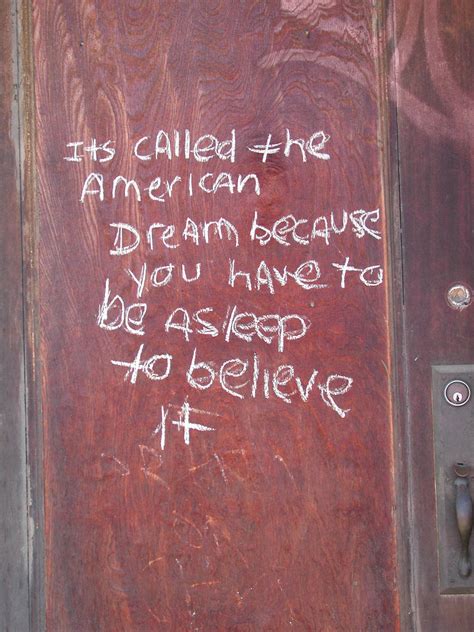 Its cAlled the
AmericAn
DReAm because
you hAve to
be Asleep
to believe
It